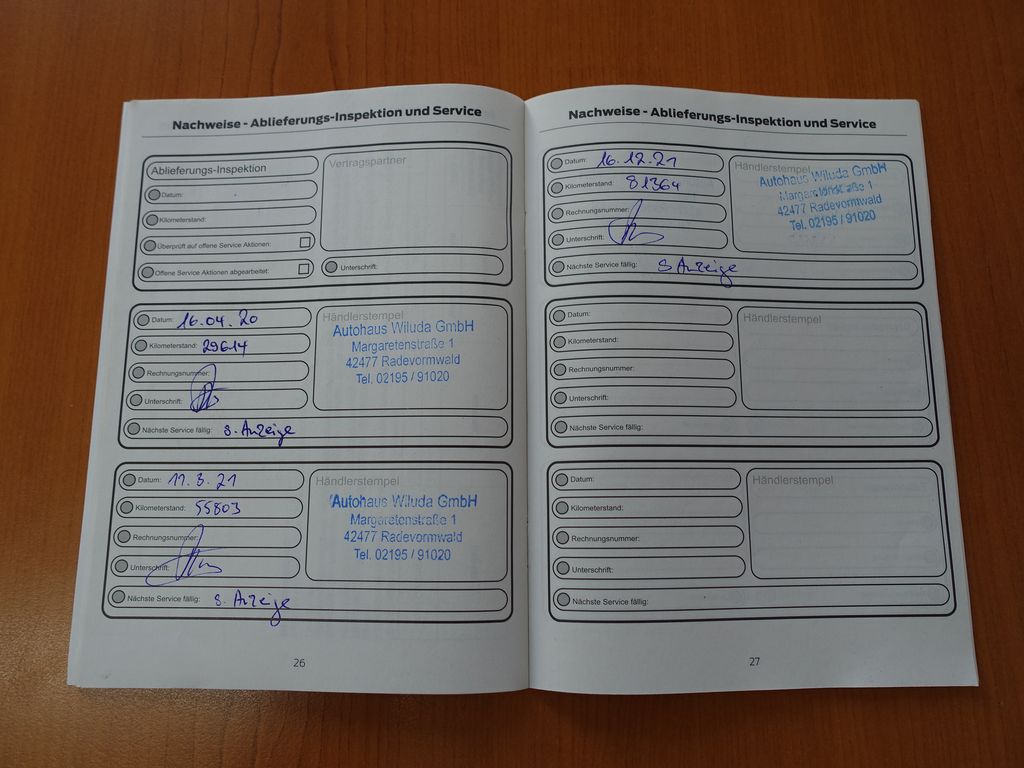 Nachweise - Ablieferungs-Inspektion und Service
Ablieferungs-Inspektion
Vertragspartner
Datum:
Kilometerstand:
Überprüft auf offene Service Aktionen:
Offene Service Aktionen abgearbeitet:
Unterschrift:
Datum: 16.04.20
Händlerstempel
Autohaus Wiluda GmbH
Margaretenstraße 1
42477 Radevormwald
Tel. 02195 / 91020
Kilometerstand: 29614
Rechnungsnummer:
Unterschrift:
Nächste Service fällig: s. Anzeige
Datum: 11.3.21
Händlerstempel
Autohaus Wiluda GmbH
Margaretenstraße 1
42477 Radevormwald
Tel. 02195 / 91020
Kilometerstand: 55803
Rechnungsnummer:
Unterschrift:
Nächste Service fällig: s. Anzeige
26
Nachweise - Ablieferungs-Inspektion und Service
Datum: 16.12.21
Händlerstempel
Autohaus Wiluda GmbH
Margaretenstraße 1
42477 Radevormwald
Tel. 02195 / 91020
Kilometerstand: 81364
Rechnungsnummer:
Unterschrift:
Nächste Service fällig: s Anzeige
Datum:
Händlerstempel
Kilometerstand:
Rechnungsnummer:
Unterschrift:
Nächste Service fällig:
Datum:
Händlerstempel
Kilometerstand:
Rechnungsnummer:
Unterschrift:
Nächste Service fällig:
27